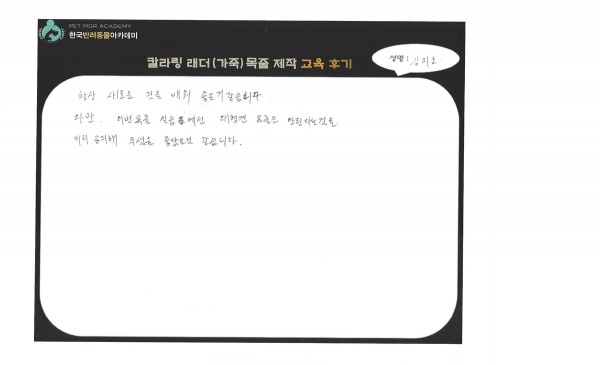 PET MGR ACADEMY
한국반려동물아카데미
칼라링 래더(가죽) 목줄 제작 교육 후기
성명:
항상 새로운 것을 배워 좋은거 같습니다.
다만, 이번 목줄 실습에선 대형견 목줄은 안된다는것을
미리 공지해 주셨음 좋았을것 같습니다.